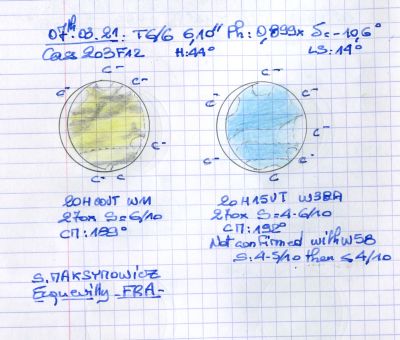 07th.03.21. T6/6 6,10" Ph: 0,899x S=-10,6°
Cass 203F12 H:44° LS:14°
C- C-
C- C- C- C-
C- C-
C- C C
20H00UT W11 20H15UT W38A
270x S=6/10 270x S=4-6/10
CM:189° CM:192°
Not confirmed with W58
S:4-5/10 then ≤4/10
S.MAKSYMOWICZ
Ecquevilly -FRA-